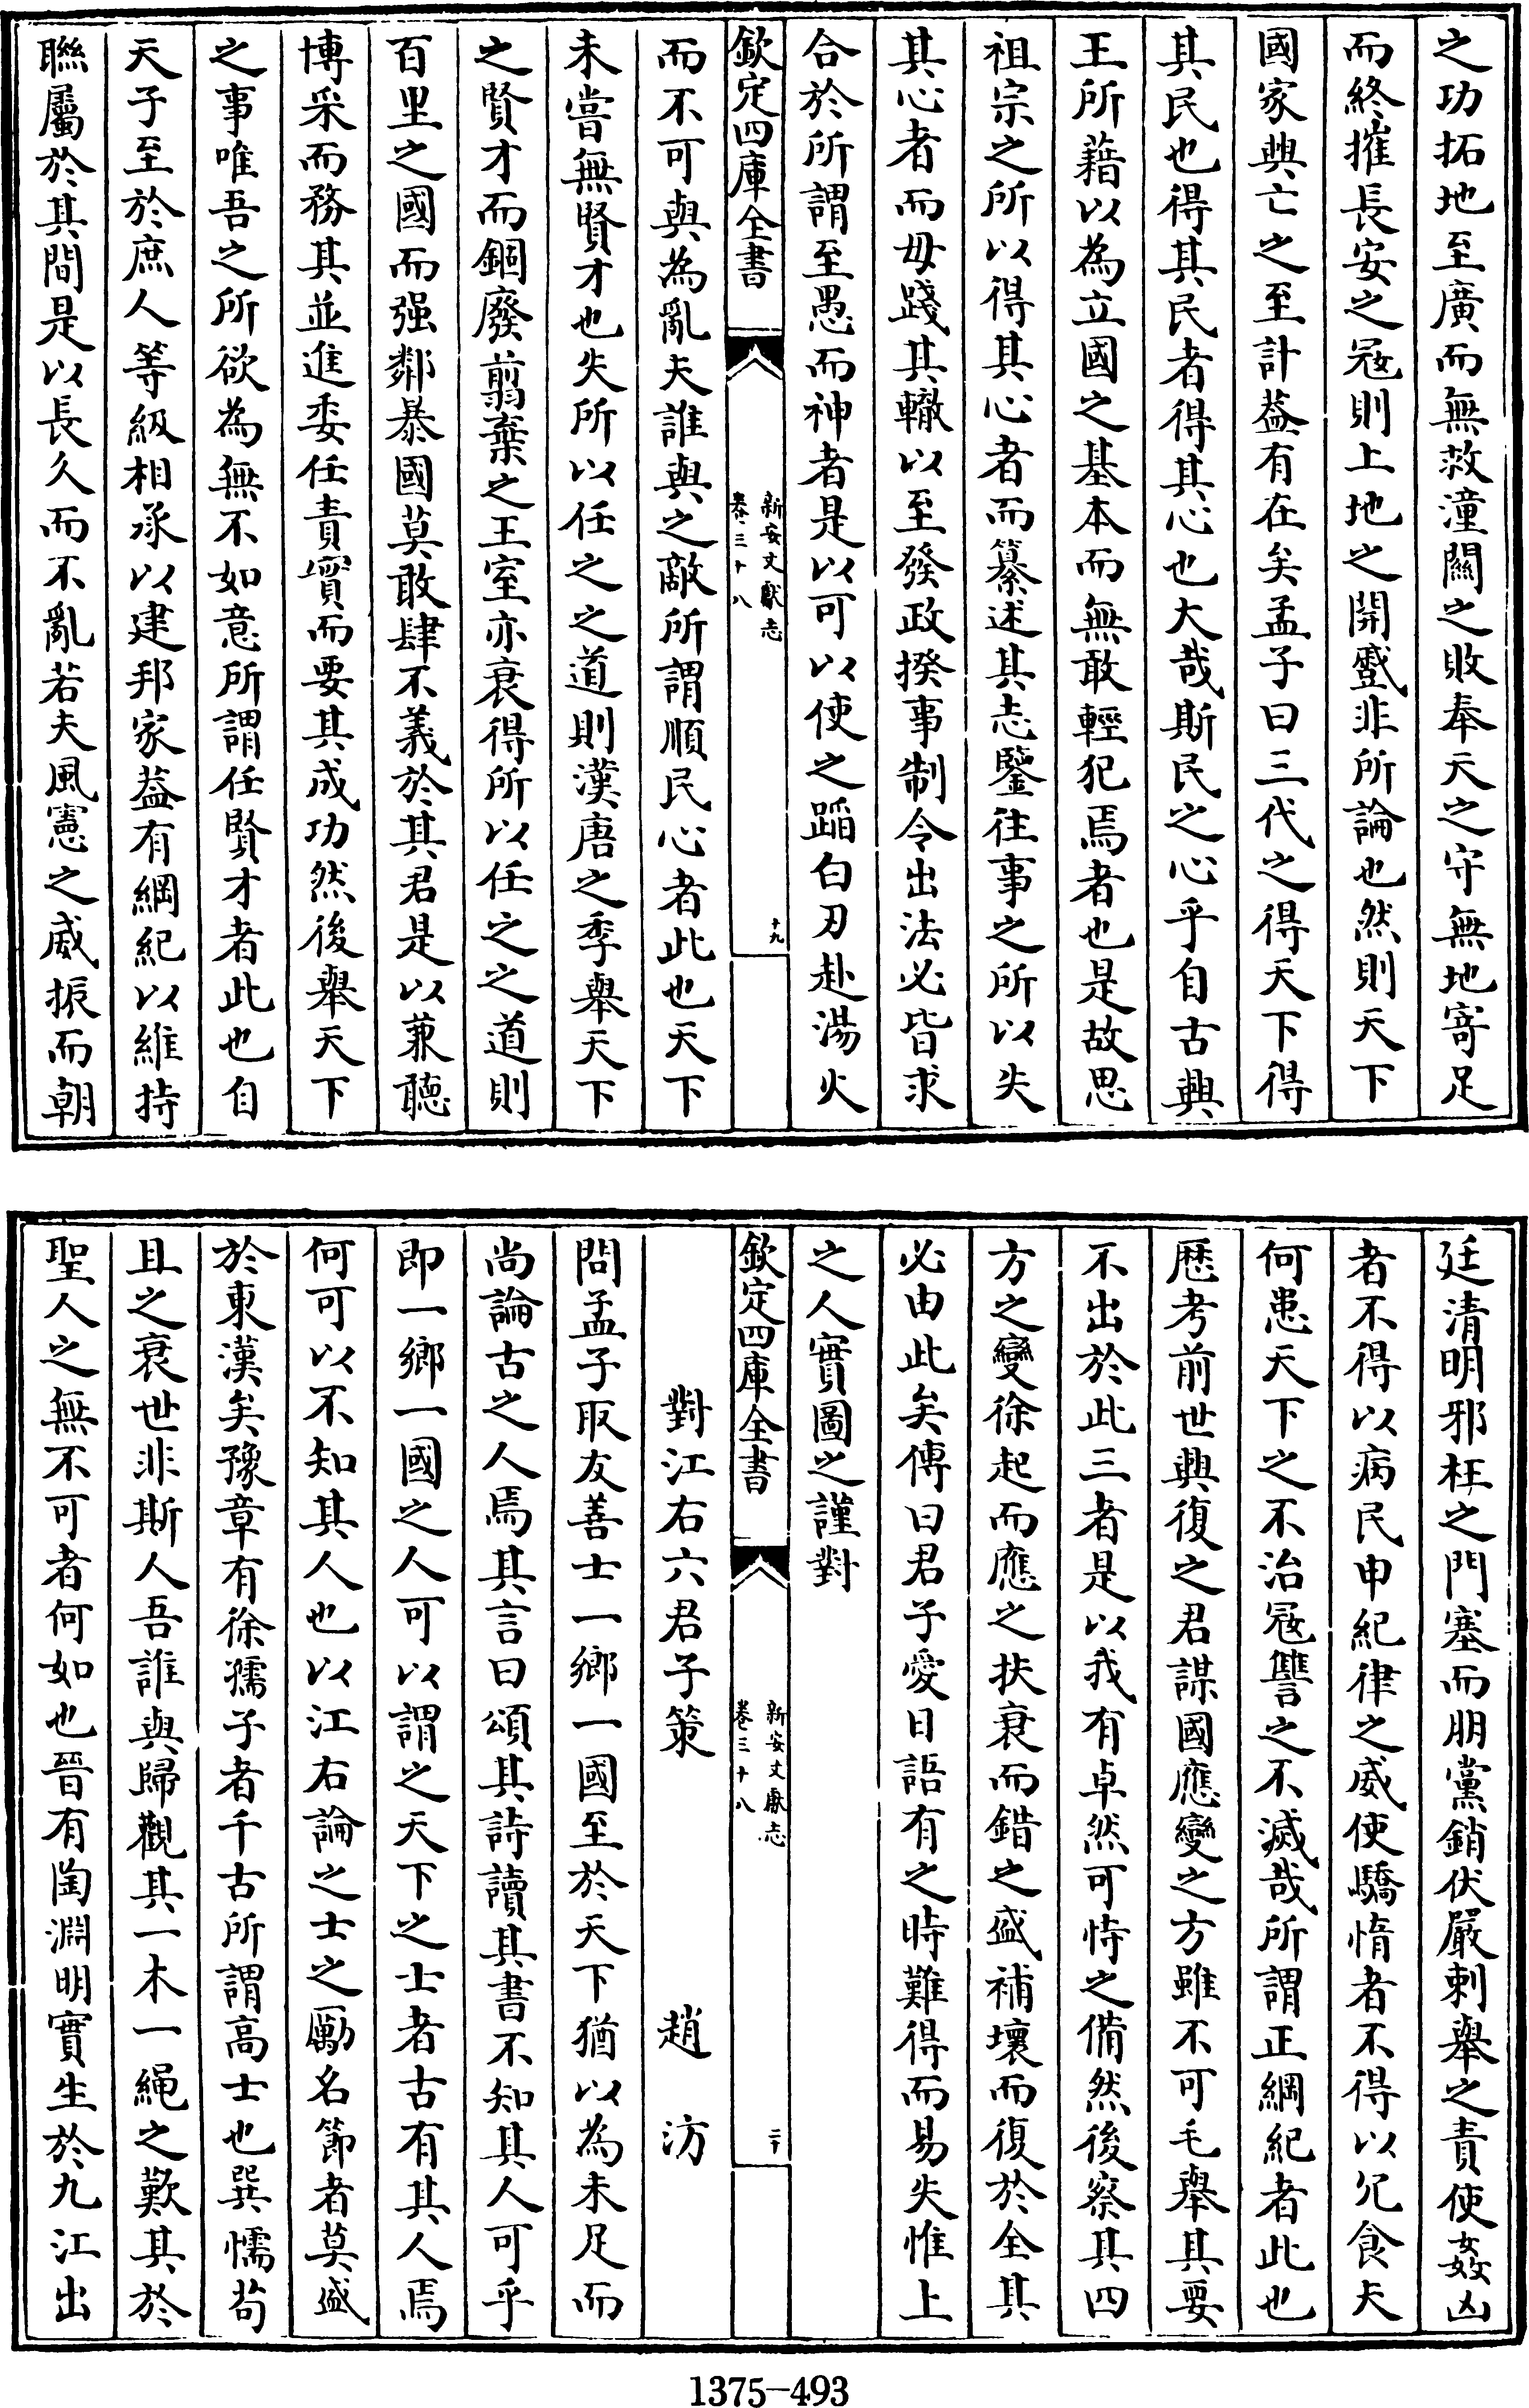 之功拓地至廣而無救潼關之敗奉天之守無地寄足
而終摧長安之冦則上地之開蹙非所論也然則天下
國家興亡之至計葢有在矣孟子曰三代之得天下得
其民也得其民者得其心也大哉斯民之心乎自古興
王所藉以為立國之基本而無敢輕犯焉者也是故思
祖宗之所以得其心者而纂述其志鑒往事之所以失
其心者而毋踐其轍以至發政揆事制令出法必皆求
合於所謂至愚而神者是以可以使之蹈白刃赴湯火
欽定四庫全書
新安文獻志
卷三十八
十九
而不可與為亂夫誰與之敵所謂順民心者此也天下
未嘗無賢才也失所以任之之道則漢唐之季舉天下
之賢才而錮廢翦棄之王室亦衰得所以任之之道則
百里之國而强鄰暴國莫敢肆不義於其君是以兼聽
博采而務其並進委任責實而要其成功然後舉天下
之事唯吾之所欲為無不如意所謂任賢才者此也自
天子至於庶人等級相承以建邦家葢有綱紀以維持
聯屬於其間是以長久而不亂若夫風憲之威振而朝
廷清明邪枉之門塞而朋黨銷伏嚴刺舉之責使姦凶
者不得以病民申紀律之威使驕惰者不得以冗食夫
何患天下之不治冦讐之不滅哉所謂正綱紀者此也
歴考前世興復之君謀國應變之方雖不可毛舉其要
不出於此三者是以我有卓然可恃之備然後察其四
方之變徐起而應之扶衰而錯之盛補壞而復於全其
必由此矣傳曰君子愛日語有之時難得而易失惟上
之人實圖之謹對
欽定四庫全書
新安文獻志
卷三十八
二十
對江右六君子策 趙汸
問孟子取友善士一鄉一國至於天下猶以為未足而
尚論古之人焉其言曰頌其詩讀其書不知其人可乎
即一鄉一國之人可以謂之天下之士者古有其人焉
何可以不知其人也以江右論之士之勵名節者莫盛
於東漢矣豫章有徐孺子者千古所謂高士也巽懦苟
且之衰世非斯人吾誰與歸觀其一木一繩之歎其於
聖人之無不可者何如也晉有陶淵明實生於九江出
1375-493